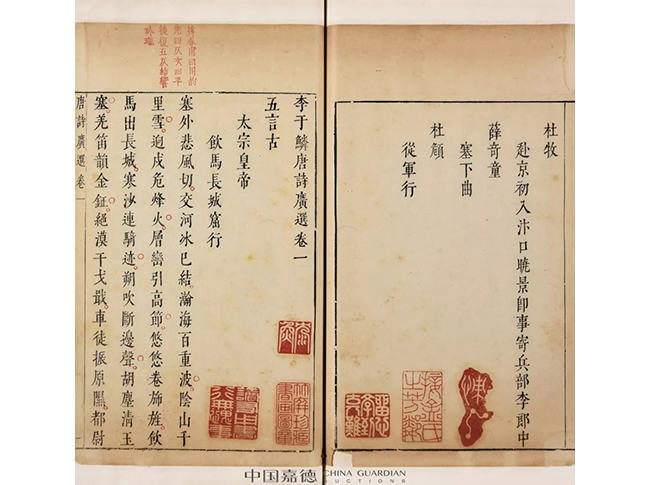 杜牧
赴京初入汴口曉景即事寄兵部李郎中
薛奇童
塞下曲
杜頠
從軍行
李于鱗唐詩廣選卷一
五言古
太宗皇帝
飲馬長城窟行
塞外悲風切交河冰已結瀚海百重波陰山千
里雪迥戍危烽火層巒引高節悠悠卷旆旌飲
馬出長城寒沙連騎迹朔吹斷邊聲胡塵清玉
塞羌笛韻金鉦絕漠干戈戢車徒振原隰都尉
唐詩廣選 卷一
中国嘉德 CHINA GUARDIAN
AUCTIONS